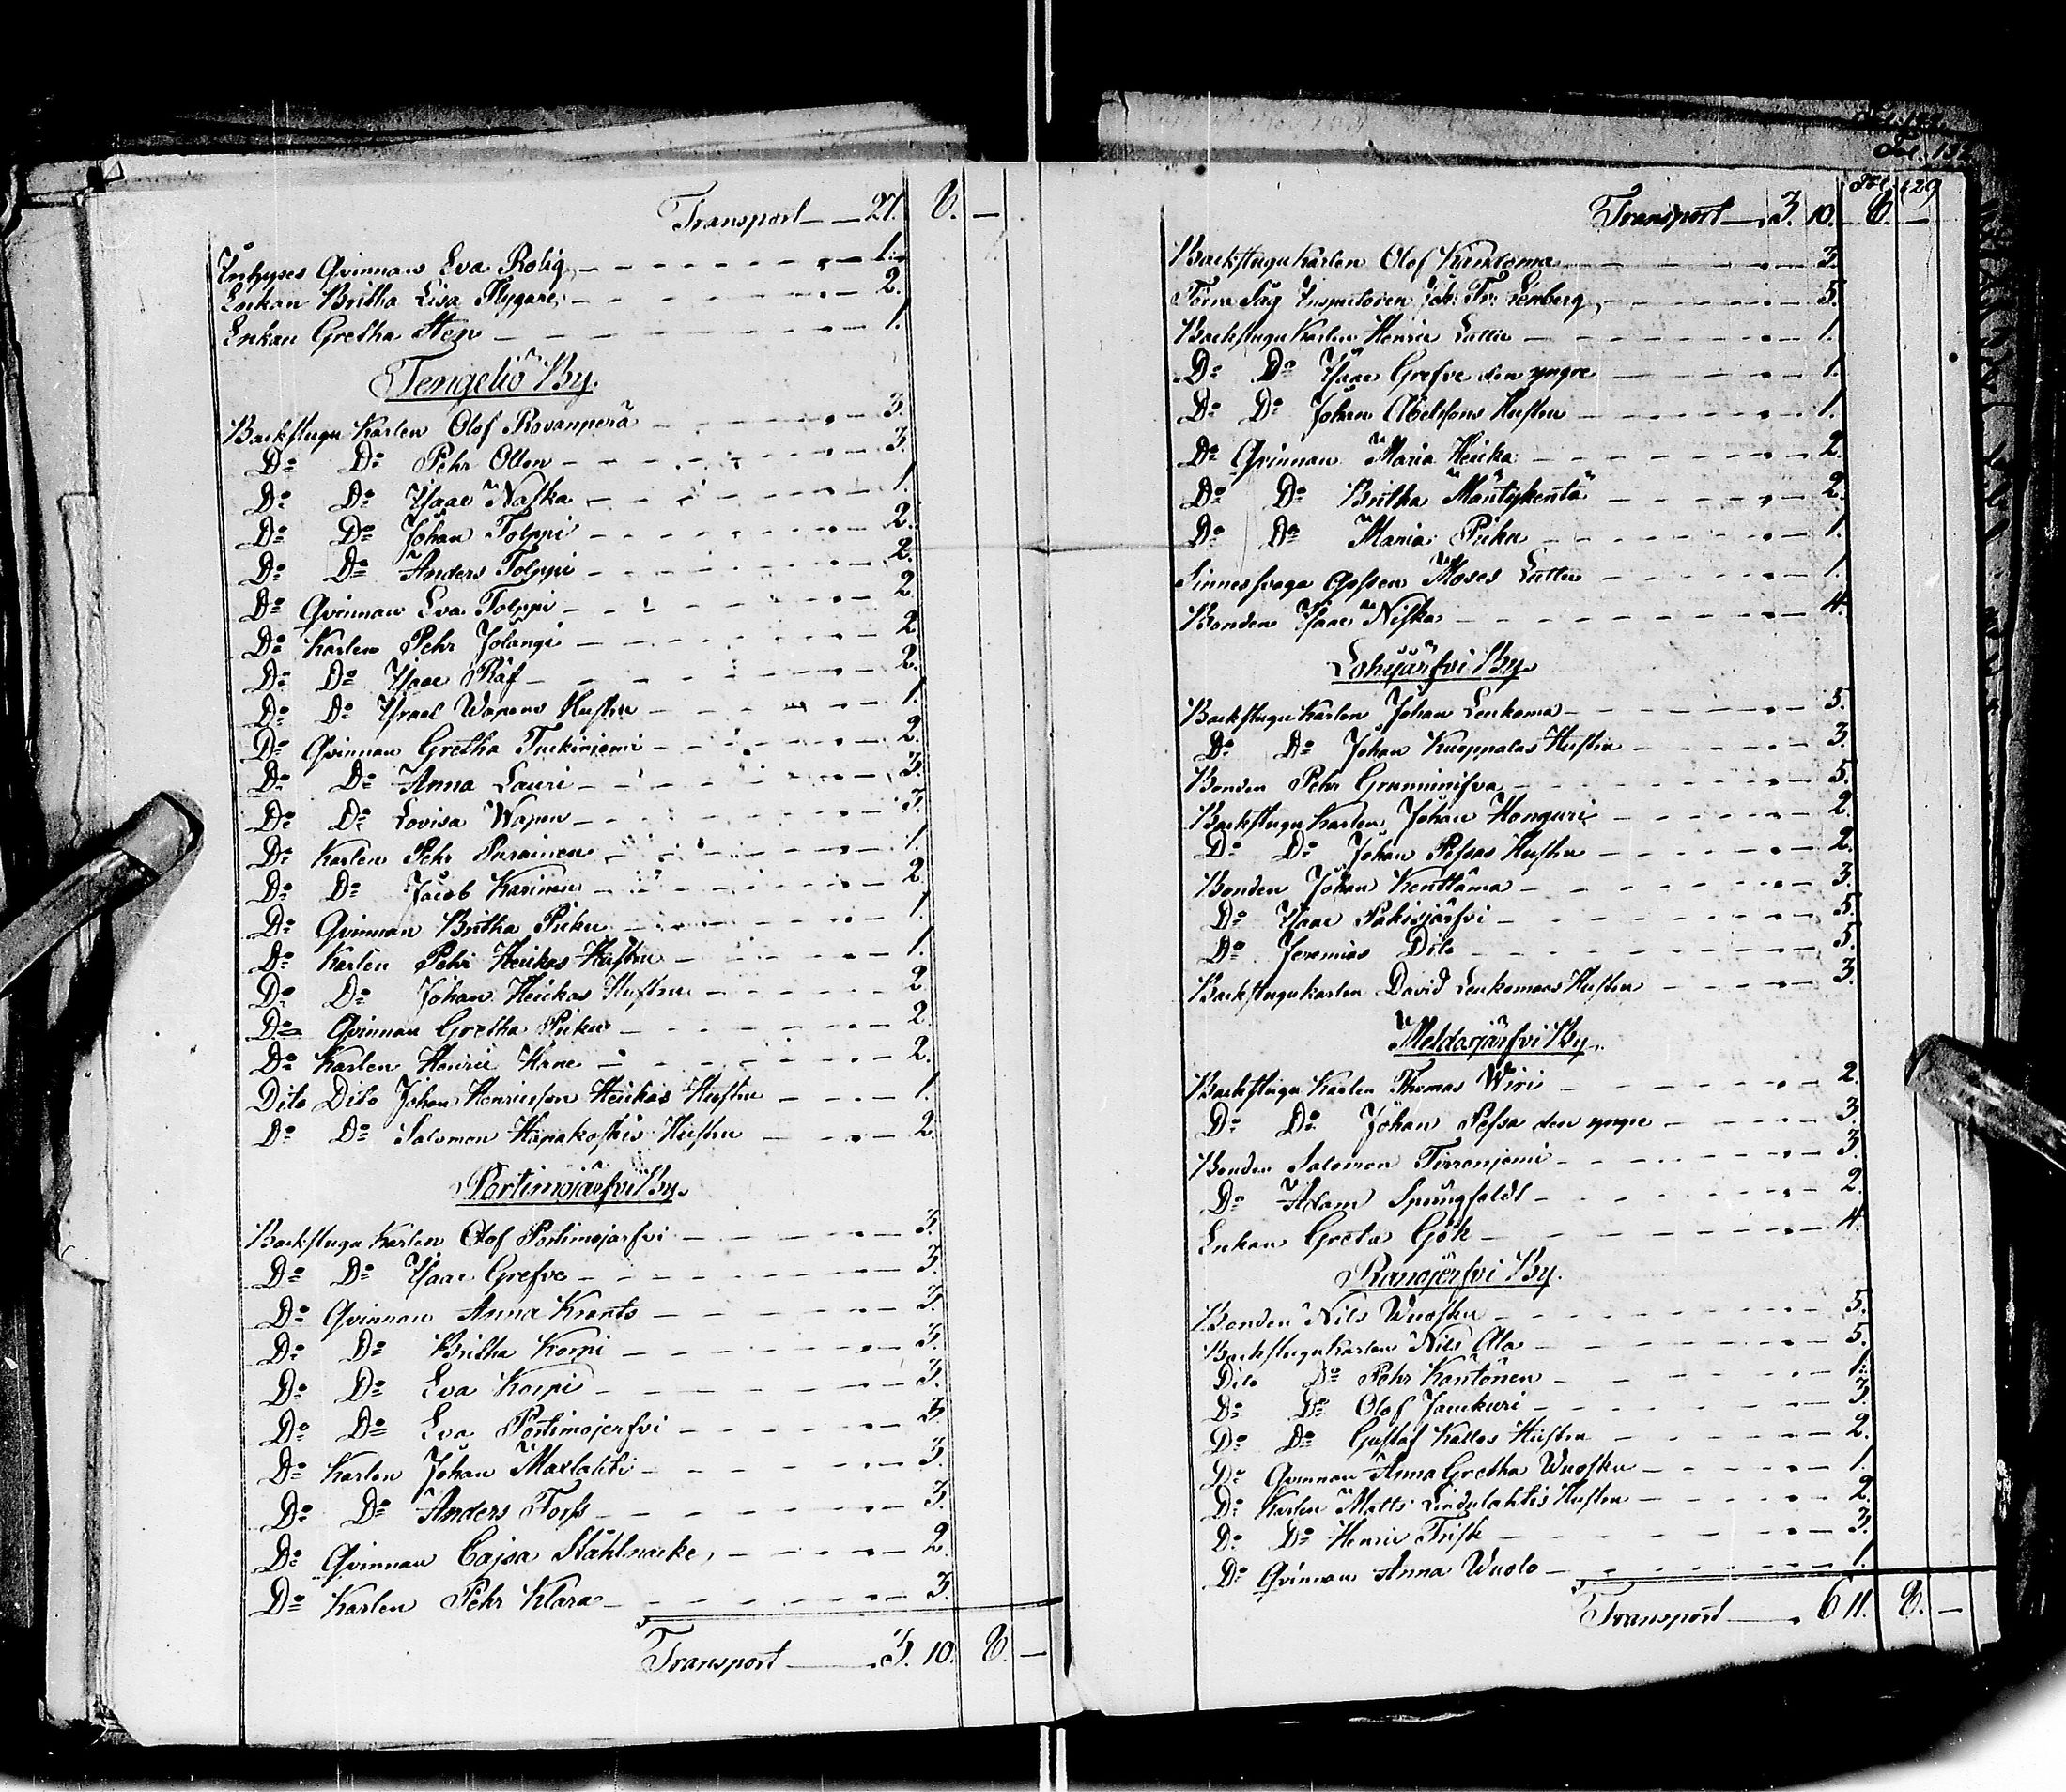 Transport — 27. 8. —
Inhyses Qvinnan Eva Rolig — 1.
Enkan Britha Lisa Flygare, — 2.
Enkan Gretha Sten — 1.
Tengeliö By.
Backstugu Karlen Olof Rovanperä — 3.
Do Do Pehr Ollon — 3.
Do Do Isaac Naska — 1.
Do Do Johan Tolppi — 2.
Do Do Anders Tolppi — 2.
Do Qvinnan Eva Tolppi — 2.
Do Karlen Pehr Jolangi — 2.
Do Do Isaac Räf — 2.
Do Do Israel Wapens Hustru — 1.
Do Qvinnan Gretha Turkiniemi — 2.
Do Do Anna Lauri — 3.
Do Do Lovisa Wapen — 3.
Do Karlen Pehr Purainen — 1.
Do Do Jacob Karinen — 2.
Do Qvinnan Britha Pieku — 1.
Do Karlen Pehr Heickas Hustru — 1.
Do Do Johan Heickas Hustru — 2.
Do Qvinnan Gretha Pieku — 2.
Do Karlen Henric Kane — 2.
Dito Dito Johan Henricsson Heickas Hustru — 1.
Do Do Salomon Hapakoskis Hustru — 2
Portimojärfvi By.
Backstugu Karlen Olof Portimojarfvi — 3.
Do Do Isaac Grefve — 3.
Do Qvinnan Anna Krants — 3.
Do Do Britha Korpi — 3.
Do Do Eva Korpi — 3.
Do Do Eva Portimojerfvi — 3.
Do Karlen Johan Maxlahti — 3.
Do Do Anders Torss — 3.
Do Qvinnan Cajsa Ståhlnacke, — 2.
Do Karlen Pehr Klara — 3.
Transport — 3. 10. 8. —
Fol. 129
Transport — 3. 10. 8. —
Backstugu Karlen Olof Kuntoma — 3.
Förra Såg Inspectoren Joh: Fr: Lemberg, — 5.
Backstugu Karlen Henric Luttu — 1.
Do Do Isaac Grefve den yngre — 1.
Do Do Johan Abelssons Hustru — 1.
Do Qvinnan Maria Heicka — 2.
Do Do Britha Mäntykentä — 2.
Do Do Maria Pieku — 1.
Sinnessvaga Gossen Moses Luttu — 1.
Bonden Isaac Niska — 4.
Lohijärfvi By.
Backstugu Karlen Johan Leukoma — 5.
Do Do Johan Kuoppalas Hustru — 3.
Bonden Pehr Grunninifva — 5.
Backstugu Karlen Johan Honguri — 2.
Do Do Johan Pessas Hustru — 2.
Bonden Johan Kenttämä — 3.
Do Isaac Pakisjärfvi — 5.
Do Jeremias Dito — 5.
Backstugu karlen David Leukomaas Hustru — 3.
Meldosjärfvi By.
Backstugu Karlen Thomas Wiri — 2.
Do Do Johan Pessa den yngre — 3.
Bonden Salomon Tirroniemi — 3.
Do Adam Springfeldt — 2.
Enkan Greta Gök — 4.
Ranojerfvi By.
Bonden Nils Wuosku — 5.
Backstugu karlen Nils Ala — 5.
Dito Do Pehr Kantonen — 1.
Do Do Olof Jauckuri — 3.
Do Do Gustaf Kallos Hustru — 2.
Do Qvinnan Anna Gretha Wuosku — 1.
Do Karlen Matts Lindulahtis Hustru — 2.
Do Do Henric Frisk — 3.
Do Qvinnan Anna Wuolo — 1.
Transport — 6 11. 8. —